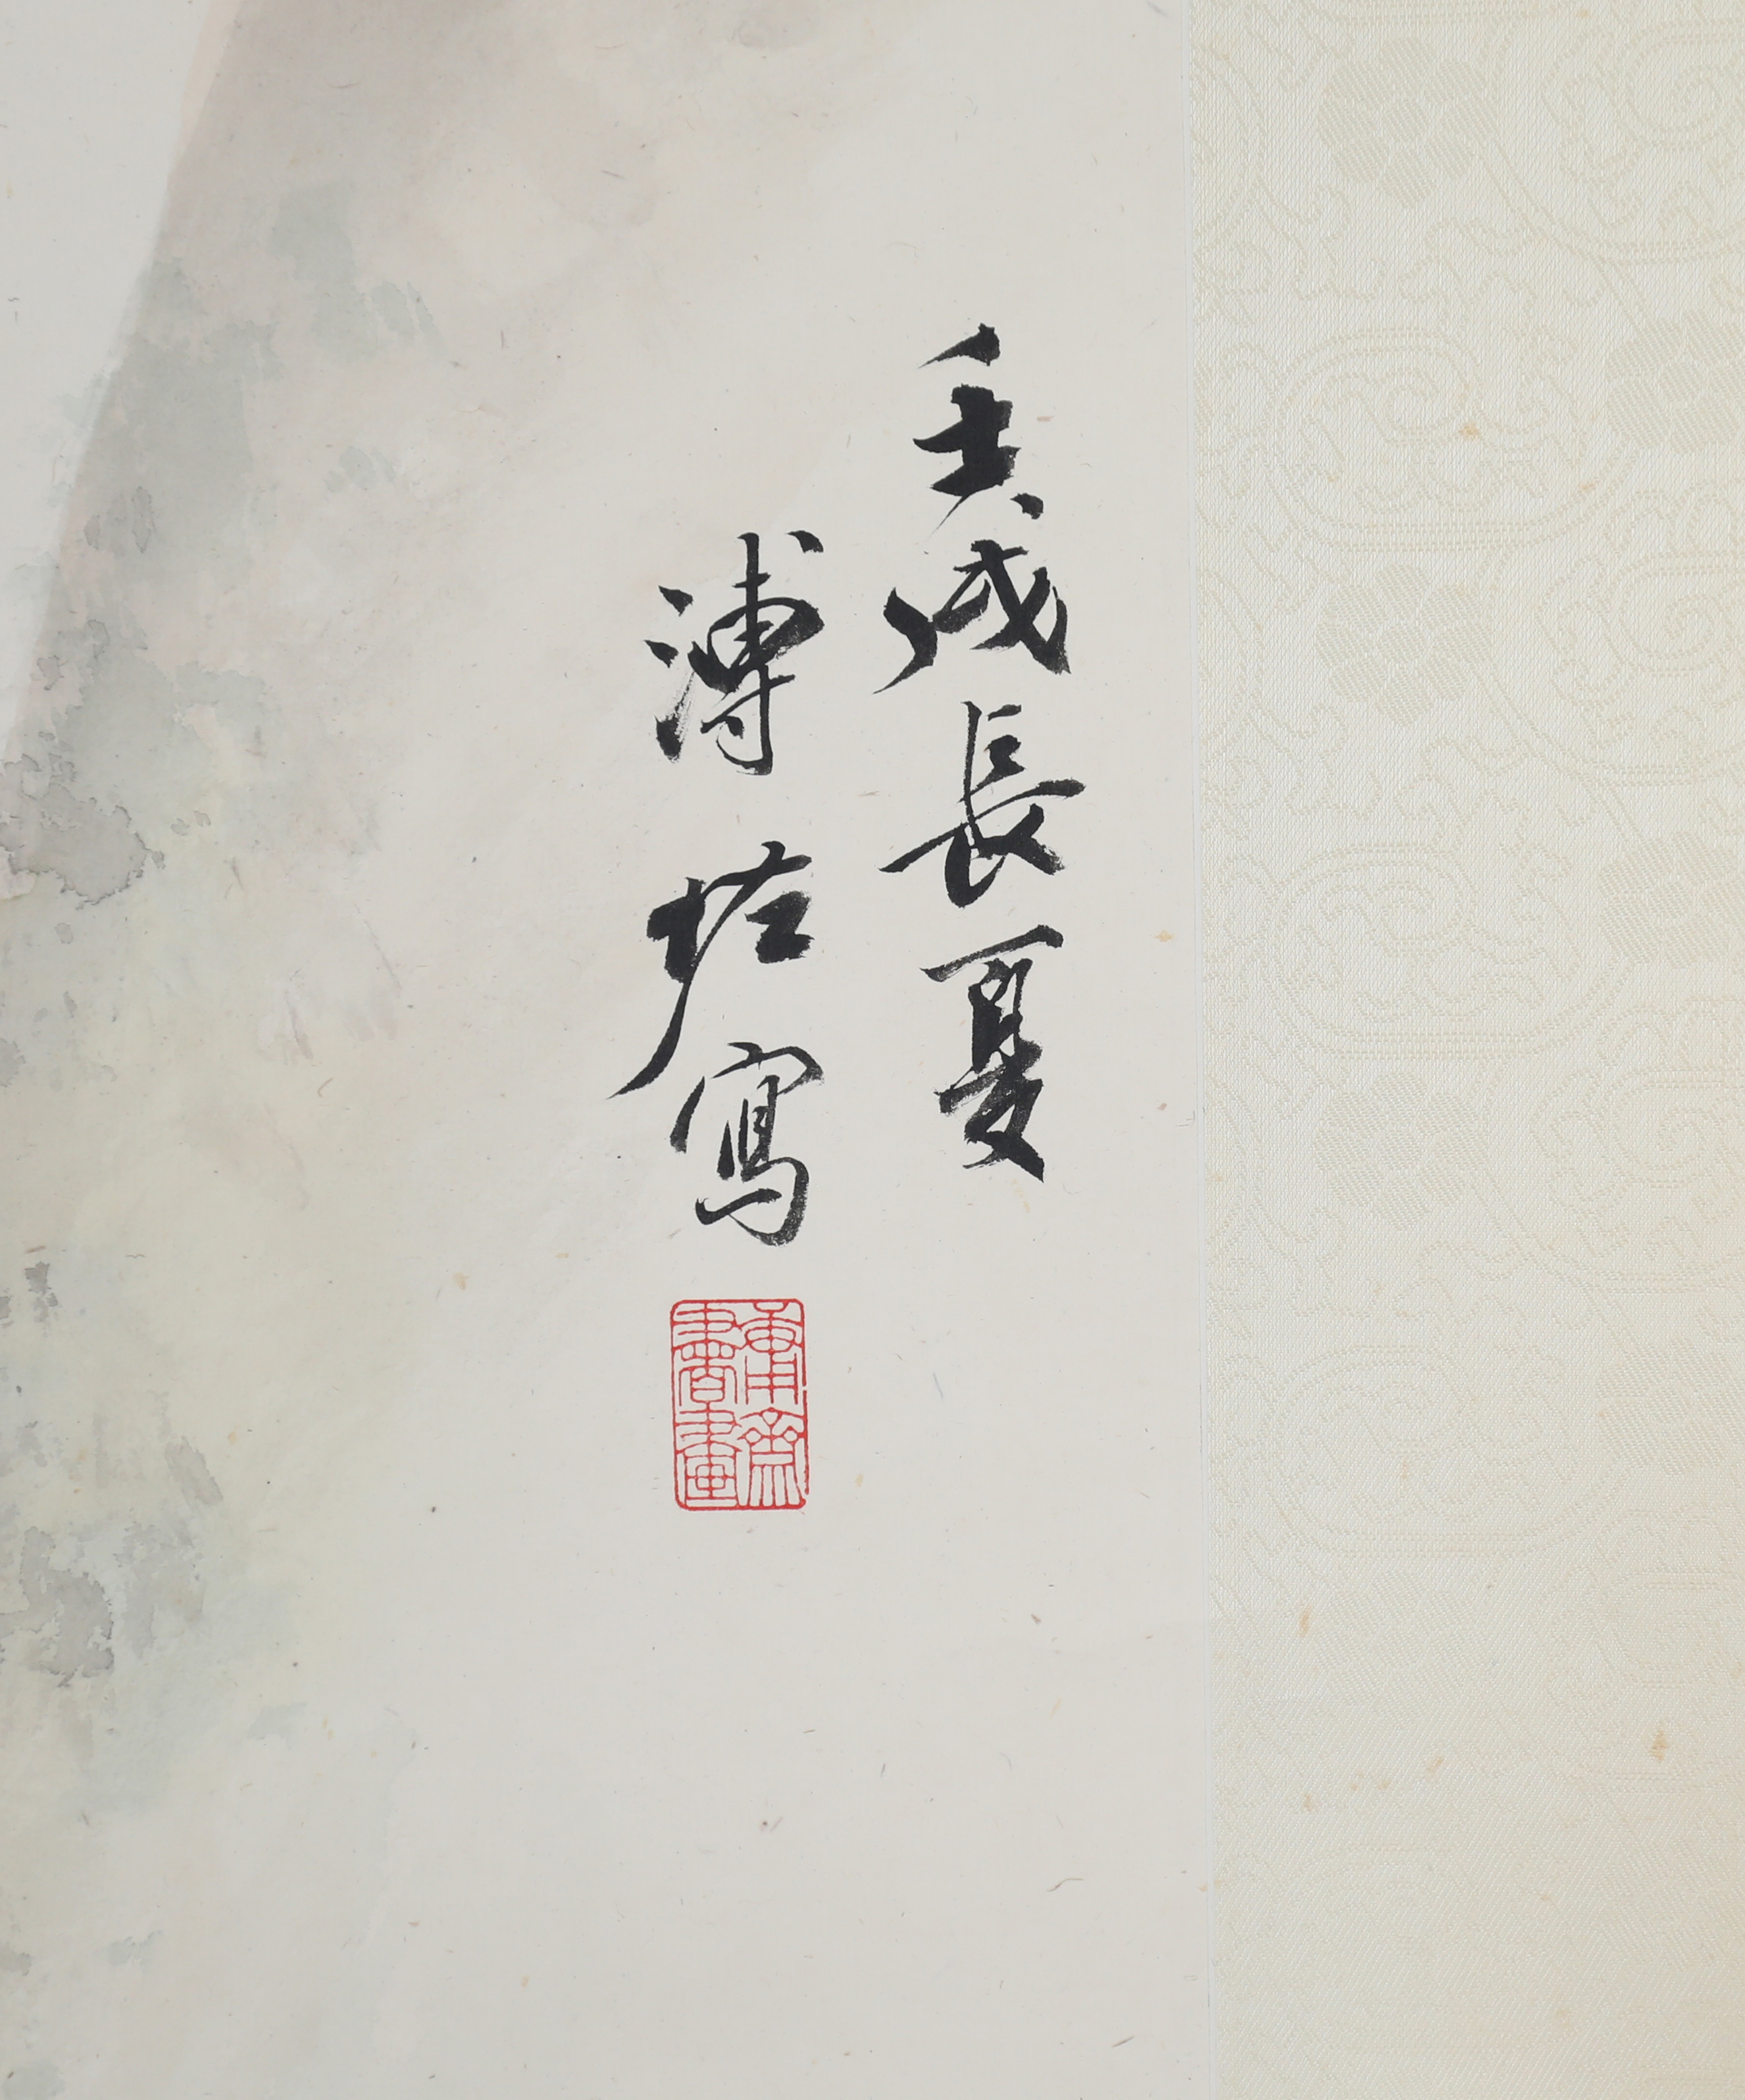 壬戌長夏
溥佐寫
庸齋書畫